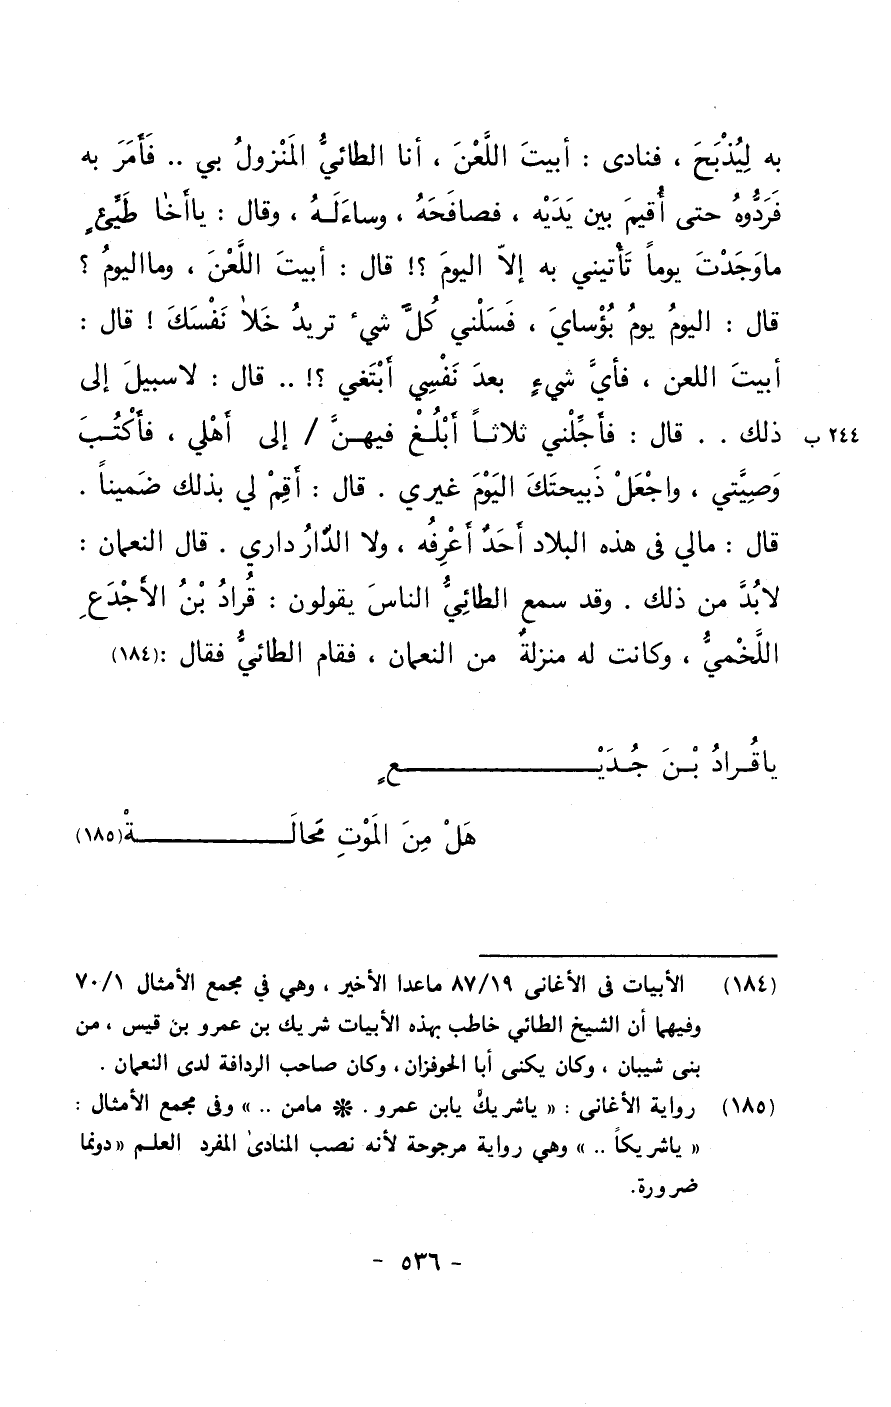 به لِيُذْبَحَ ، فنادى : أبيتَ اللَّعْنَ ، أنا الطائيُّ المَنْزولُ بي .. فَأَمَرَ به
فَرَدُّوهُ حتى أُقيمَ بين يَدَيْه ، فصافَحَهُ ، وساءَلَـهُ ، وقال : ياأَخا طَيِّئٍ
ماوَجَدْتَ يوماً تَأْتيني به إلاّ اليومَ ؟! قال : أبيتَ اللَّعْنَ ، ومااليومُ ؟
قال : اليومُ يومُ بُؤْسايَ ، فَسَلْني كُلَّ شيءٍ تريدُ خَلا نَفْسَكَ ! قال :
أبيتَ اللعن ، فأيَّ شيءٍ بعدَ نَفْسِي أَبْتَغي ؟! .. قال : لاسبيلَ إلى
ذلك . . قال : فأجِّلْني ثلاثـاً أَبْلُـغْ فيهـنَّ / إلى أَهْلي ، فأكْتُـبَ ٢٤٤ ب
وَصِيَّتي ، واجْعَلْ ذَبيحتَكَ اليَوْمَ غيري . قال : أَقِمْ لي بذلك ضَميناً .
قال : مالي فى هذه البلاد أَحَدٌ أَعْرِفُه ، ولا الدّارُ داري . قال النعمان :
لابُدَّ من ذلك . وقد سمع الطائِيُّ الناسَ يقولون : قُرادُ بْنُ الأَجْدَعِ
اللَّخْميُّ ، وكانت له منزلةٌ من النعمان ، فقام الطائيُّ فقال :(١٨٤)
ياقُـرادُ بْـنَ جُـدَيْـــــــــــعٍ
هَلْ مِنَ المَوْتِ مَحالَــــــــــةْ(١٨٥)
(١٨٤) الأبيات فى الأغانى ٨٧/١٩ ماعدا الأخير ، وهي في مجمع الأمثال ٧٠/١
وفيهما أن الشيخ الطائي خاطب بهذه الأبيات شريك بن عمرو بن قيس ، من
بنى شيبان ، وكان يكنى أبا الحوفزان ، وكان صاحب الردافة لدى النعمان .
(١٨٥) رواية الأغانى : « ياشريكُ يابن عمرو . * مامن .. » وفى مجمع الأمثال :
« ياشريكاً .. » وهي رواية مرجوحة لأنه نصب المنادىٰ المفرد العلـم «دونما
ضرورة.
- ٥٣٦ -